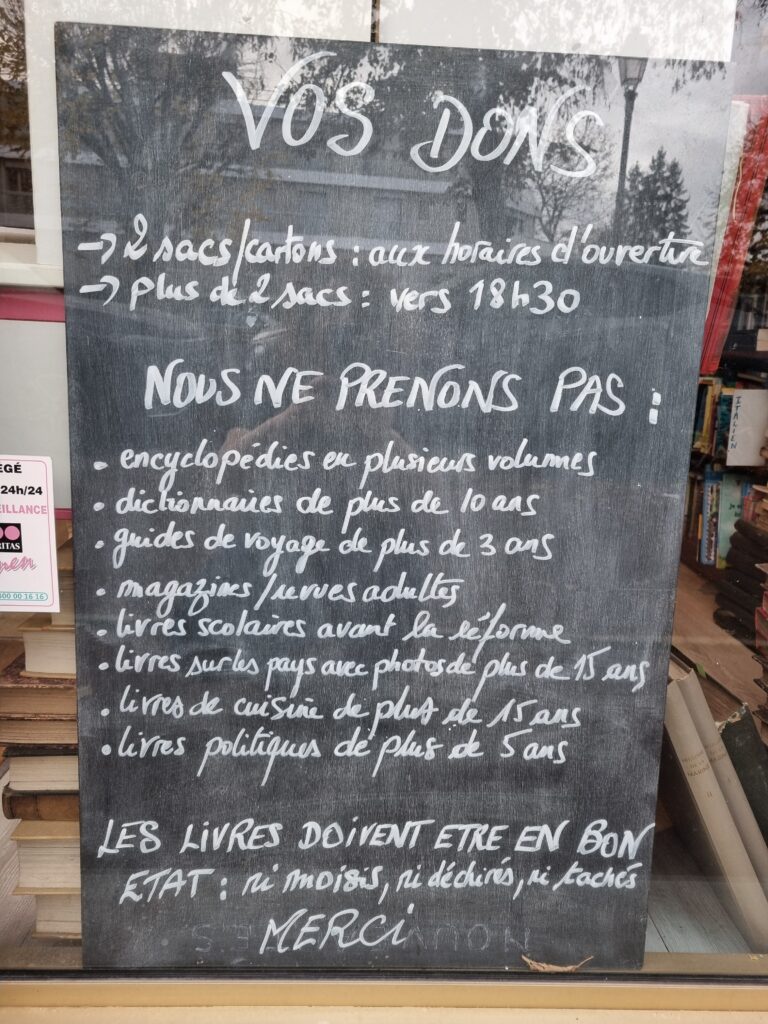 VOS DONS
→ 2 sacs/cartons : aux horaires d'ouverture
→ plus de 2 sacs : vers 18h30
NOUS NE PRENONS PAS :
• encyclopédies en plusieurs volumes
• dictionnaires de plus de 10 ans
• guides de voyage de plus de 3 ans
• magazines/revues adultes
• livres scolaires avant la réforme
• livres sur les pays avec photos de plus de 15 ans
• livres de cuisine de plus de 15 ans
• livres politiques de plus de 5 ans
LES LIVRES DOIVENT ETRE EN BON
ETAT : ni moisis, ni déchirés, ni tachés
MERCI
EGÉ
24h/24
EILLANCE
RITAS
600 00 16 16
ITALIEN
II